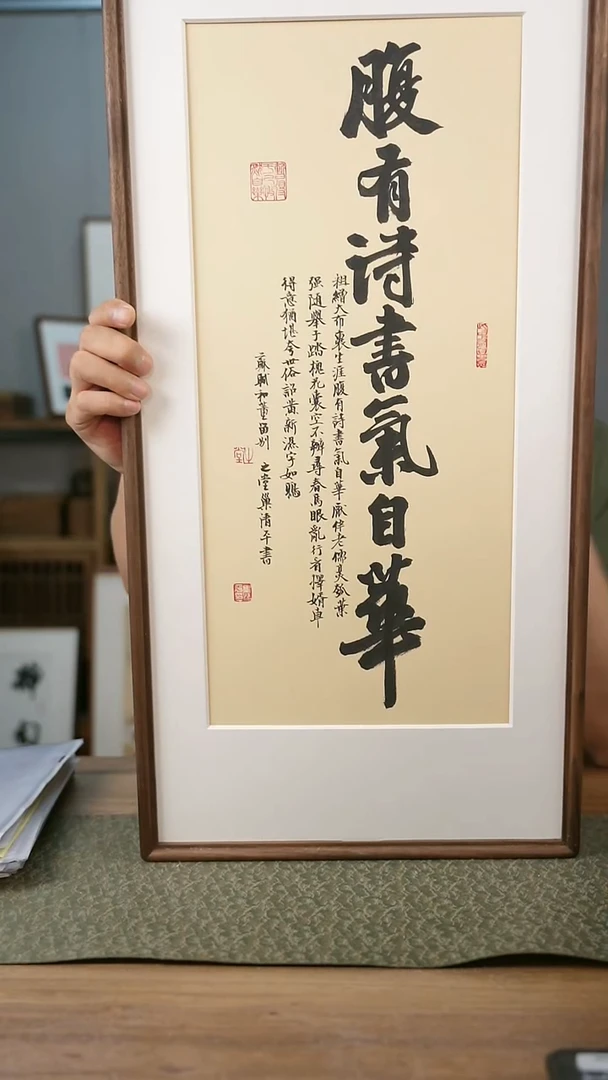 腹有詩書氣自華
粗繒大布裹生涯腹有詩書氣自華厭伴老儒烹瓠葉
强隨舉子踏槐花囊空不辦尋春馬眼亂行看擇婿車
得意猶堪夸世俗詔黃新濕字如鴉
蘇軾和董留別 之堂巢清平書